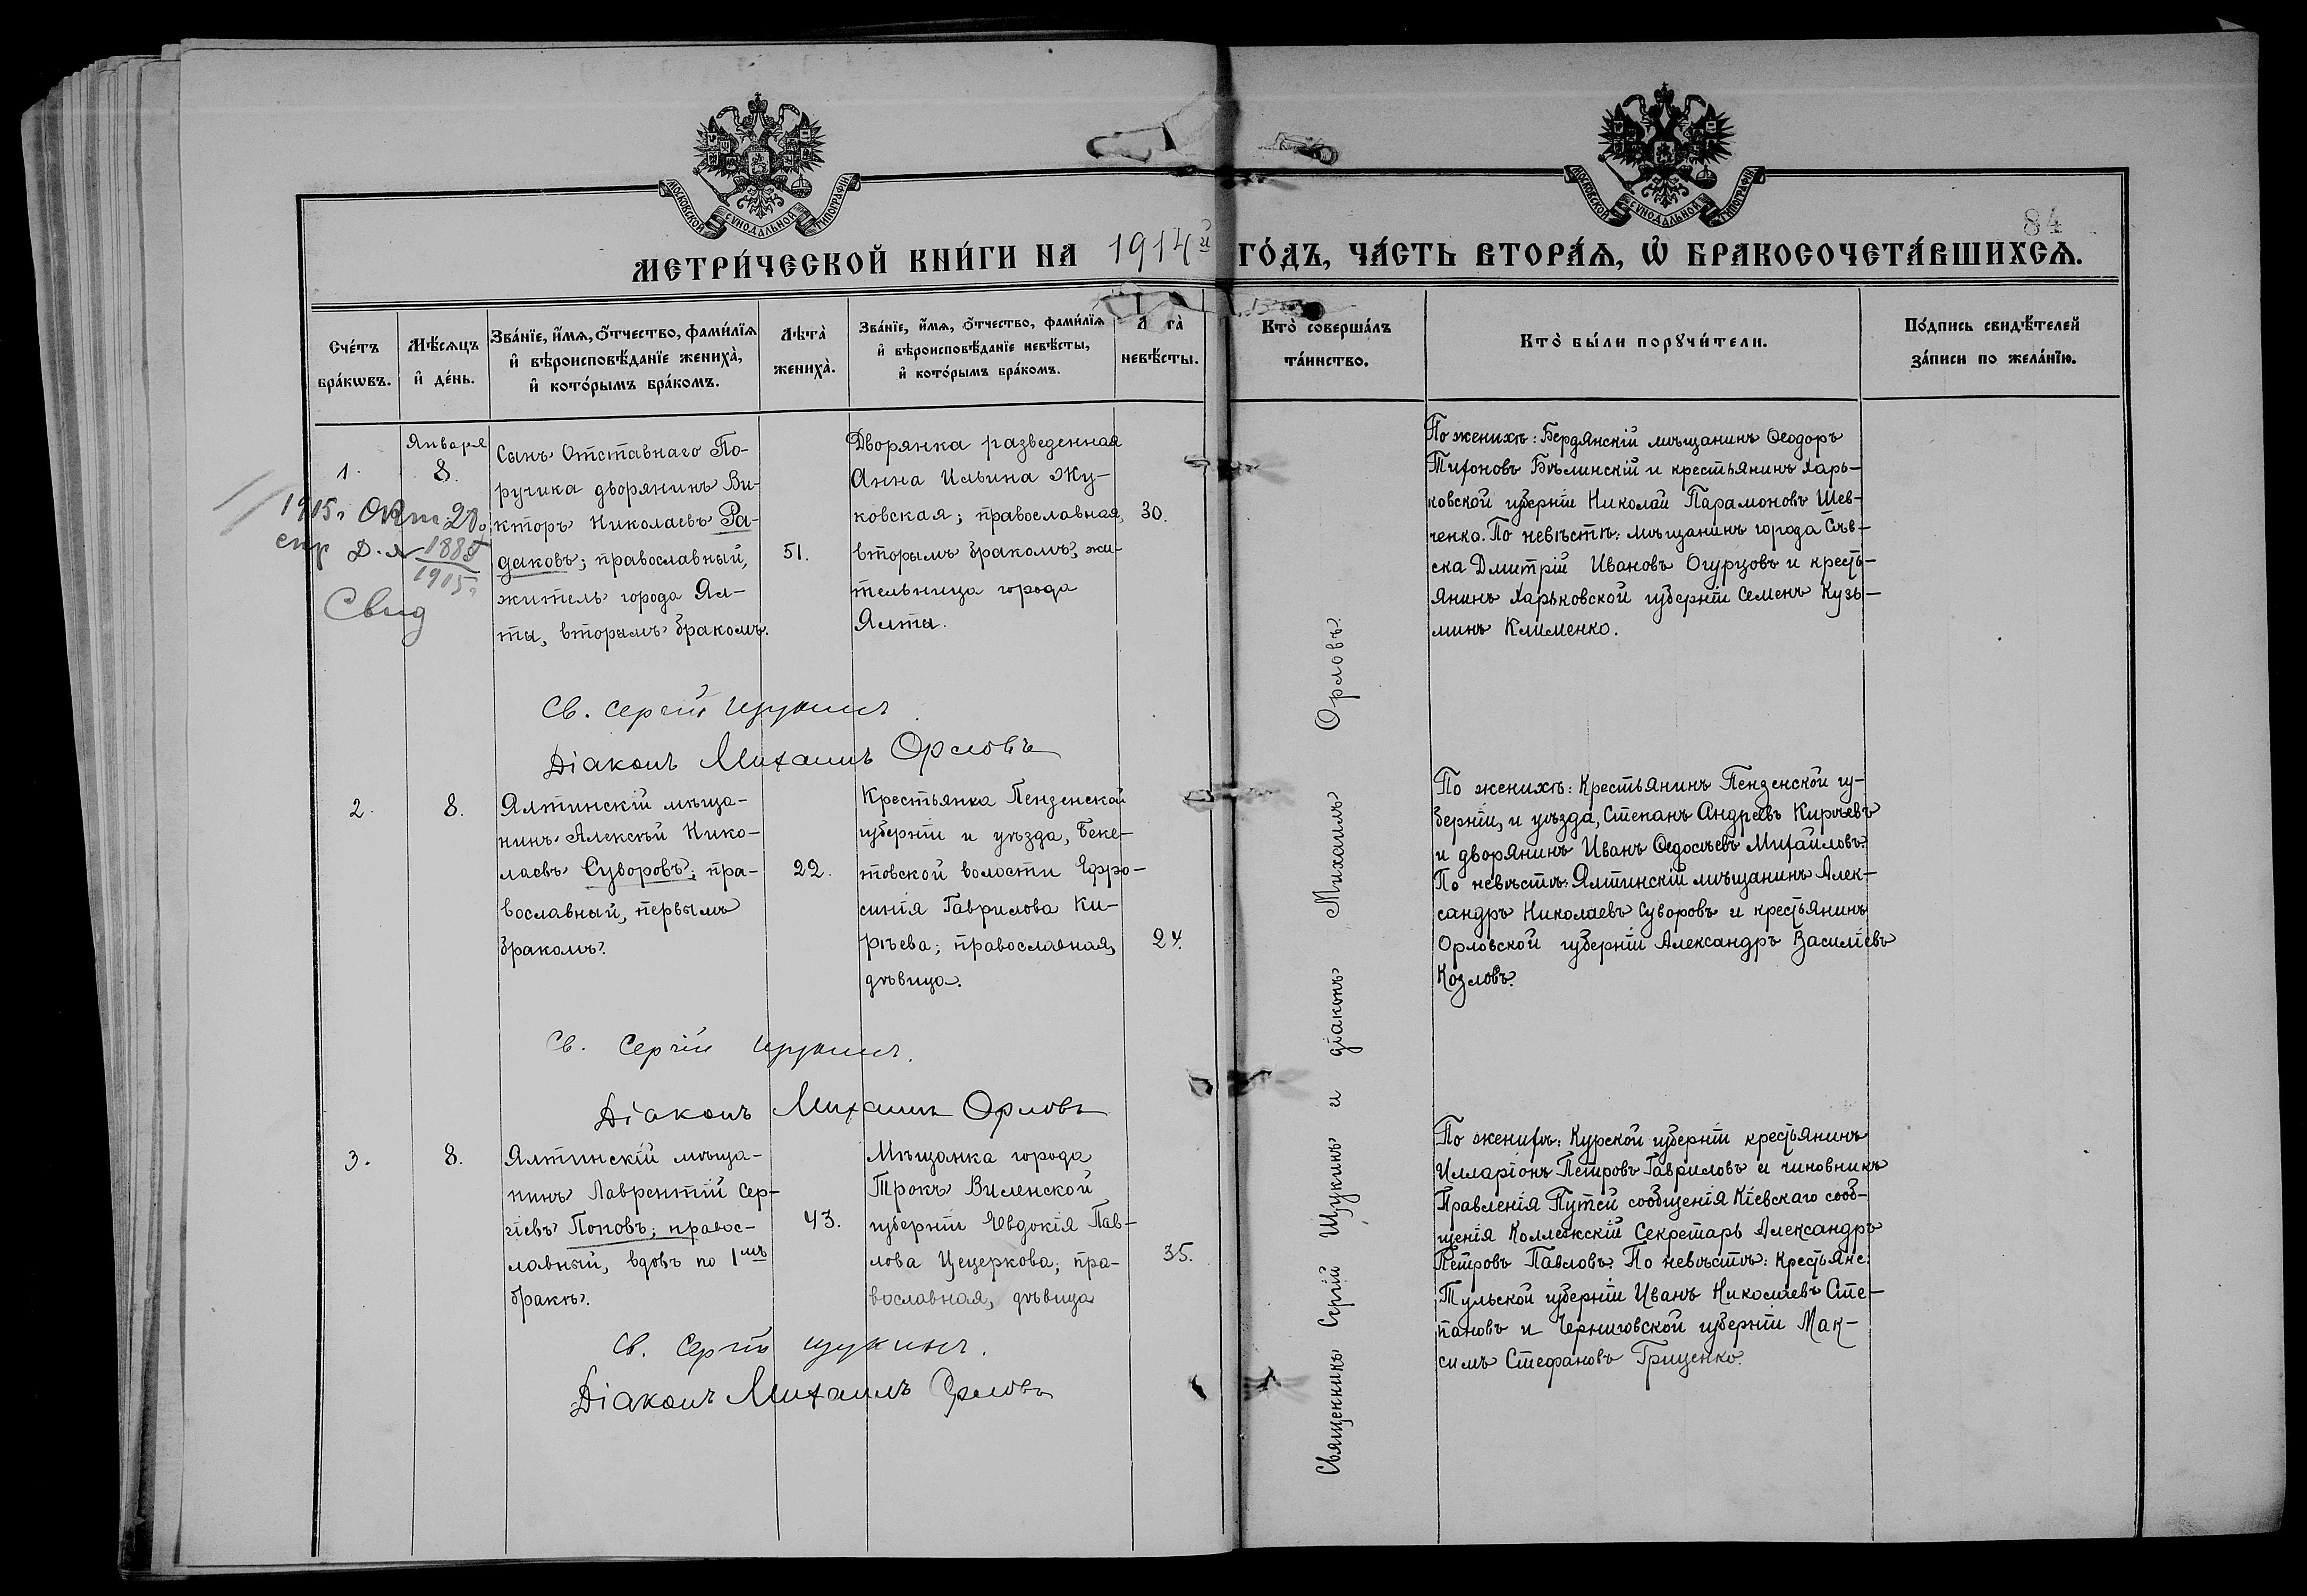 МОСКОВСКОЙ СѴНОДАЛЬНОЙ ТИПОГРАФІИ
МОСКОВСКОЙ СѴНОДАЛЬНОЙ ТИПОГРАФІИ
84
МЕТРИ́ЧЕСКОЙ КНИ́ГИ НА 1914й ГО́ДЪ, ЧА́СТЬ ВТОРА́Ѧ, Ѽ БРАКОСОЧЕТА́ВШИХСѦ.
Сче́тъ
бра́кѡвъ.
Мѣ́сѧцъ
и҆ де́нь.
Зва́нїе, и҆́мѧ, ѻ҆́тчество, фами́лїѧ
и҆ вѣроисповѣ́данїе жениха̀,
и҆ кото́рымъ бра́комъ.
Лѣта̀
жениха̀.
Зва́нїе, и҆́мѧ, ѻ҆́тчество, фами́лїѧ
и҆ вѣроисповѣ́данїе невѣ́сты,
и҆ кото́рымъ бра́комъ.
Л та̀
невѣ́сты.
Кто̀ соверша́лъ
та́инство.
Кто̀ бы́ли порꙋчи́тели.
По́дпись свидѣ́телей
за́писи по жела́нїю.
1.
Января
8.
1915г. Окт 20.
спр Д. №
1915г.
Свид
Сынъ Отставнаго По-
ручика дворянинъ Ви-
кторъ Николаевъ Ра-
даковъ; православный,
житель города Ял-
ты, вторымъ бракомъ.
51.
Дворянка разведенная
Анна Ильина Жу-
ковская; православная,
вторымъ бракомъ, жи-
тельница города
Ялты.
30.
По женихѣ: Бердянскій мѣщанинъ Ѳеодоръ
Тихоновъ Бѣлинскій и крестьянинъ Харь-
ковской губерніи Николай Парамоновъ Шев-
ченко. По невѣстѣ: мѣщанинъ города Сѣв-
ска Дмитрій Ивановъ Огурцовъ и кресть-
янинъ Харьковской губерніи Семенъ Кузь-
минъ Клименко.
Св. Сергій Щукинъ
Діаконъ Михаилъ Орловъ
2.
8.
Ялтинскій мѣща-
нинъ Алексѣй Нико-
лаевъ Суворовъ; пра-
вославный, первымъ
бракомъ.
22.
Крестьянка Пензенской
губерніи и уѣзда, Беке-
товской волости Ефро-
синія Гаврилова Ки-
рѣева; православная,
дѣвица.
24.
По женихѣ: Крестьянинъ Пензенской гу-
берніи, и уѣзда, Степанъ Андреевъ Кирѣевъ
и дворянинъ Иванъ Ѳедосѣевъ Михайловъ.
По невѣстѣ: Ялтинскій мѣщанинъ Алек-
сандръ Николаевъ Суворовъ и крестьянинъ
Орловской губерніи Александръ Василіевъ
Козловъ.
Св. Сергій Щукинъ.
Діаконъ Михаилъ Орловъ
3.
8.
Ялтинскій мѣща-
нинъ Лаврентій Сер-
гіевъ Поповъ; правос-
лавный, вдовъ по 1мъ
бракѣ.
43.
Мѣщанка города
Трокъ Виленской
губерніи Евдокія Пав-
лова Цецеркова; пра-
вославная, дѣвица
35.
По женихѣ: Курской губерніи крестьянинъ
Илларіонъ Петровъ Гавриловъ и чиновникъ
Правленія Путей сообщенія Кіевскаго сооб-
щенія Коллежскій Секретарь Александръ
Петровъ Павловъ. По невѣстѣ: Крестьяне:
Тульской губерніи Иванъ Николаевъ Сте-
пановъ и Черниговской губерніи Мак-
симъ Стефановъ Гриценко.
Св. Сергій Щукинъ.
Діаконъ Михаилъ Орловъ
Священникъ Сергій Щукинъ и діаконъ Михаилъ Орловъ.